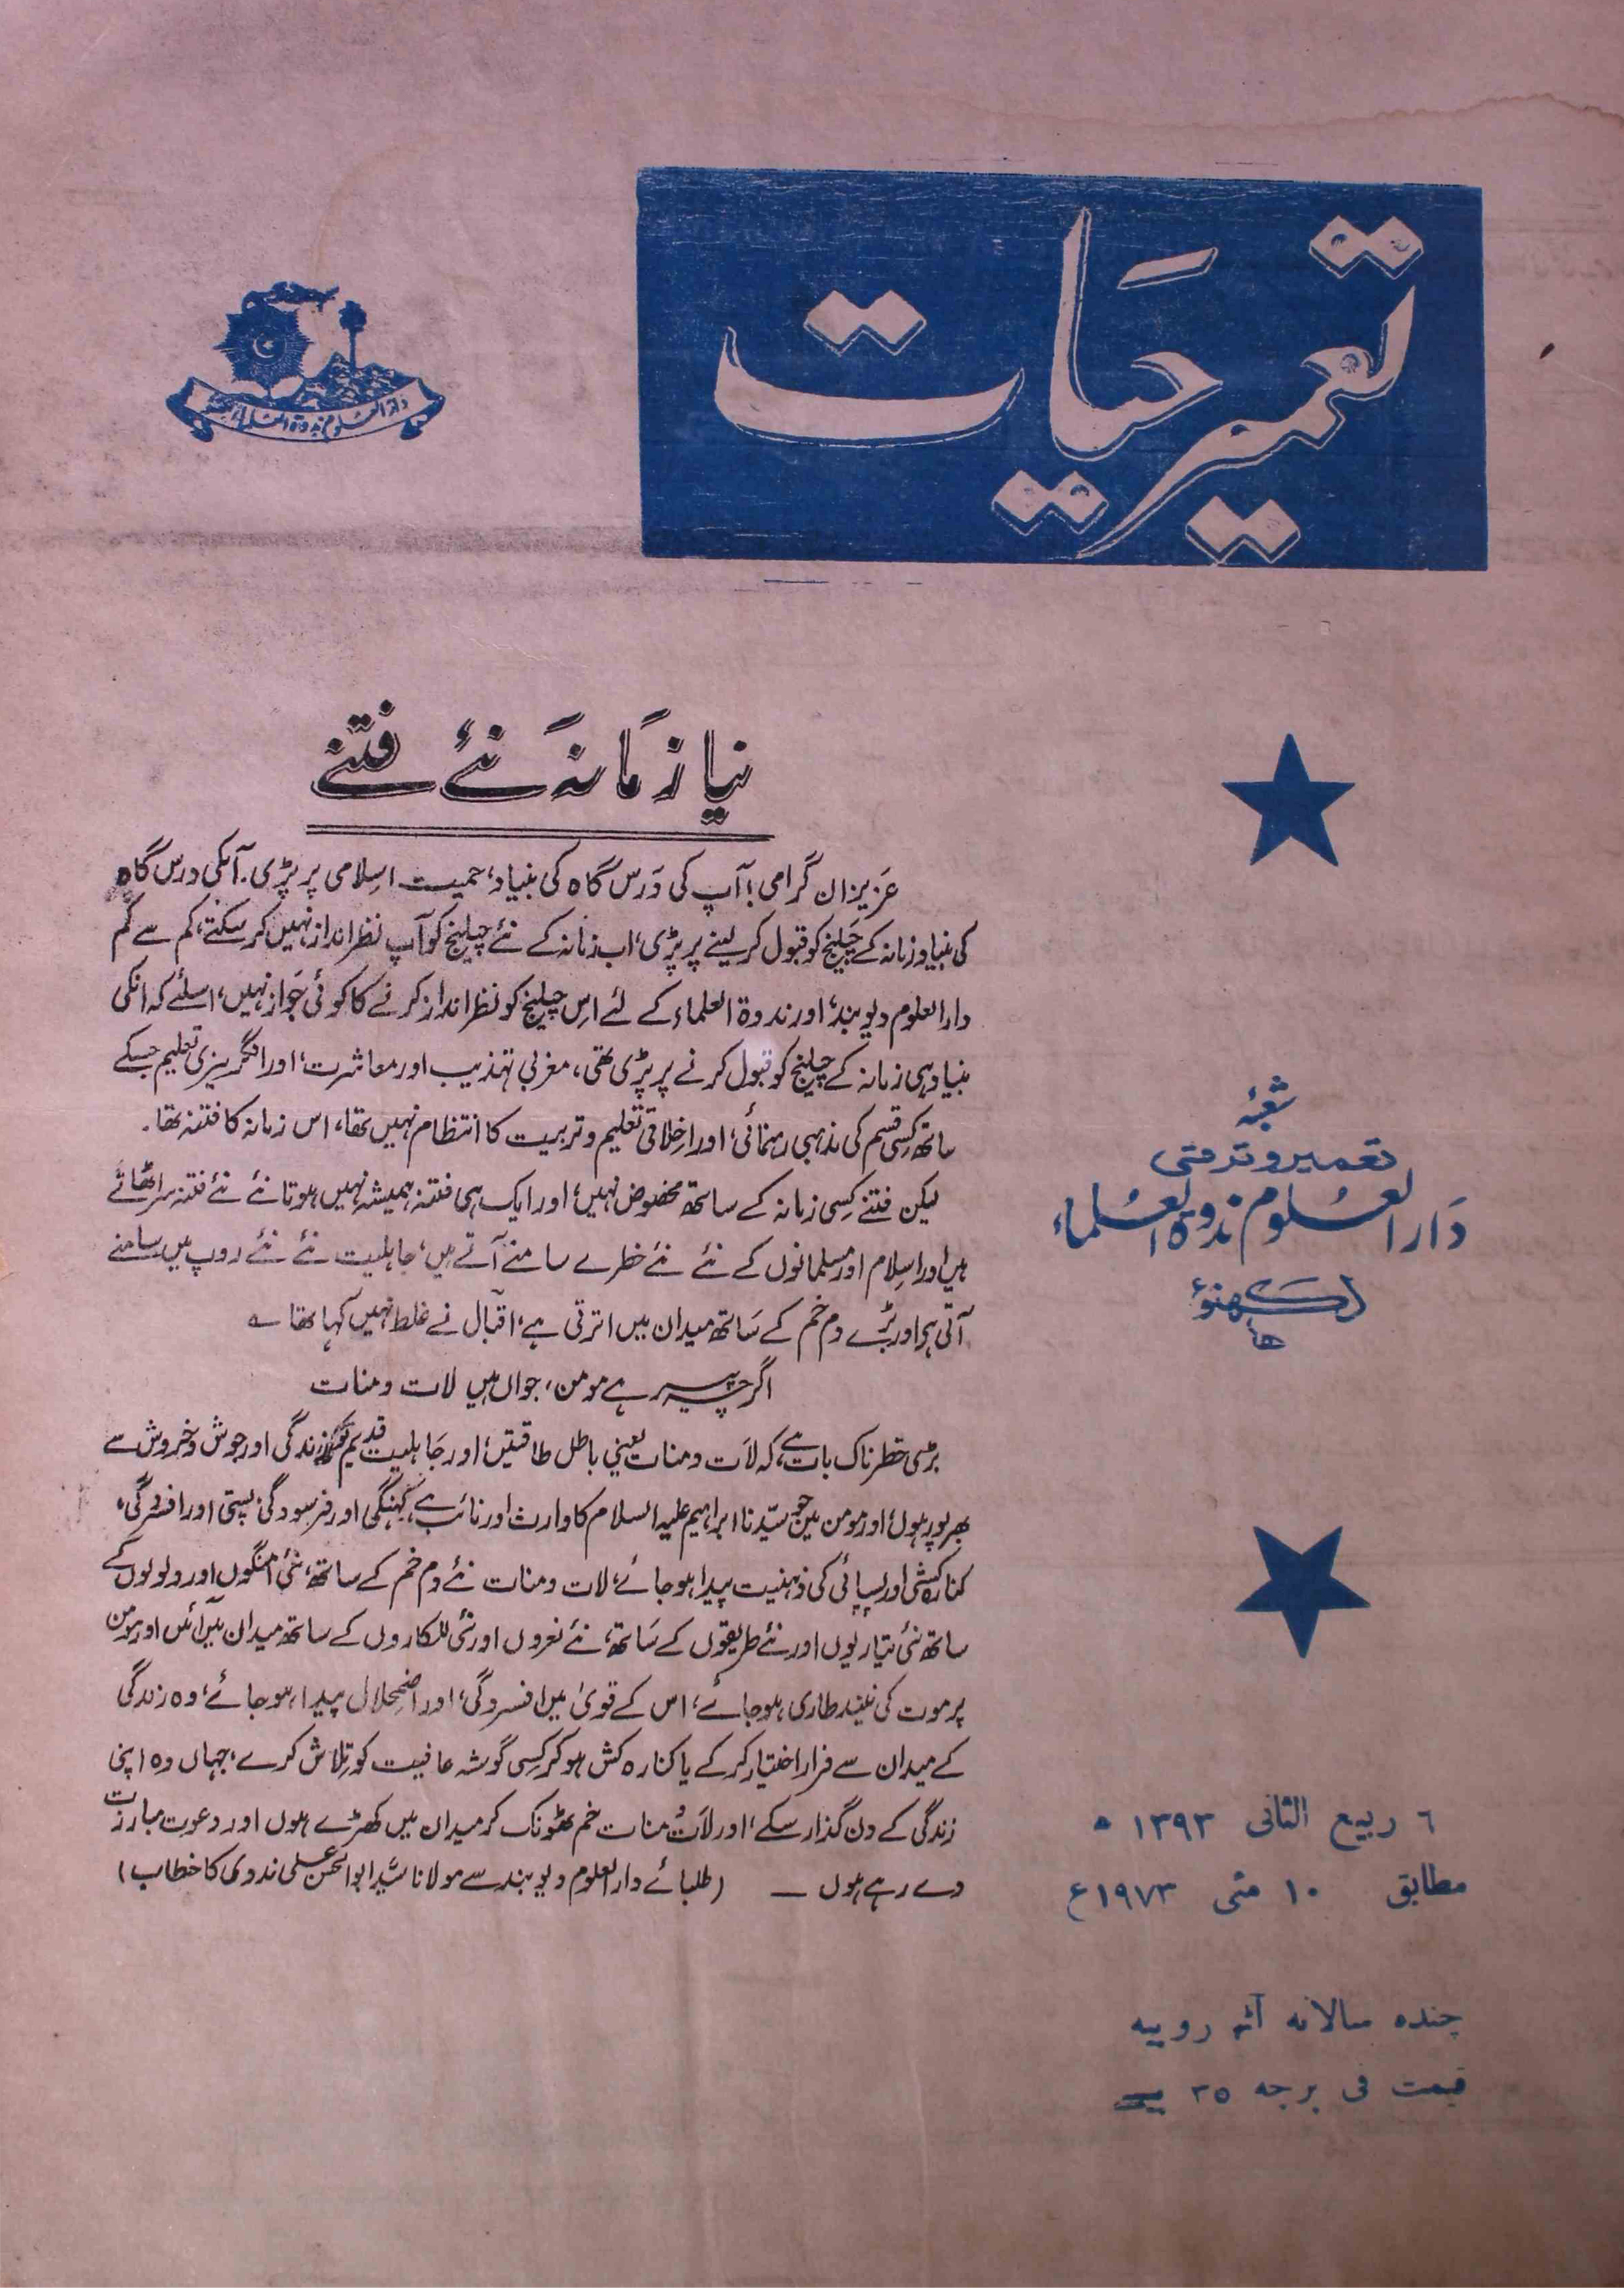 تعمیر حیات
دار العلوم ندوة العلماء
نیا زمانہ نئے فتنے
عزیزان گرامی! آپ کی درس گاہ کی بنیاد، حمیت اسلامی پر پڑی۔ آپکی درس گاہ
کی بنیاد زمانہ کے چیلنج کو قبول کر لینے پر پڑی، اب زمانہ کے نئے چیلنج کو آپ نظر انداز نہیں کر سکتے، کم سے کم
دارالعلوم دیوبند، اور ندوة العلماء کے لئے اس چیلنج کو نظر انداز کرنے کا کوئی جواز نہیں، اسلئے کہ انکی
بنیاد ہی زمانہ کے چیلنج کو قبول کرنے پر پڑی تھی، مغربی تہذیب اور معاشرت، اور انگریزی تعلیم جسکے
ساتھ کسی قسم کی مذہبی رہنمائی، اور اخلاقی تعلیم و تربیت کا انتظام نہیں تھا، اس زمانہ کا فتنہ تھا۔
لیکن فتنے کسی زمانہ کے ساتھ مخصوص نہیں، اور ایک ہی فتنہ ہمیشہ نہیں ہوتا نئے نئے فتنہ سر اٹھاتے
ہیں اور اسلام اور مسلمانوں کے نئے نئے خطرے سامنے آتے ہیں، جاہلیت نئے نئے روپ میں سامنے
آتی ہے اور بڑے دم خم کے ساتھ میدان میں اترتی ہے، اقبال نے غلط نہیں کہا تھا ؎
اگرچہ پیر ہے مومن، جواں ہیں لات و منات
بڑی خطرناک بات ہے، کہ لات و منات یعنی باطل طاقتیں، اور جاہلیت قدیم زندگی اور جوش و خروش سے
بھرپور ہوں، اور مومن میں جو سیّدنا ابراہیم علیہ السلام کا وارث اور نائب ہے، کہنگی اور فرسودگی، پستی اور افسردگی،
کنارہ کشی اور پسپائی کی ذہنیت پیدا ہو جائے، لات و منات نئے دم خم کے ساتھ، نئی امنگوں اور ولولوں کے
ساتھ نئی تیاریوں اور نئے طریقوں کے ساتھ، نئے نعروں اور نئی للکاروں کے ساتھ میدان میں آئیں اور مومن
پر موت کی نیند طاری ہو جائے، اس کے قویٰ میں افسردگی، اور اضمحلال پیدا ہو جائے، وہ زندگی
کے میدان سے فرار اختیار کر کے یا کنارہ کش ہو کر کسی گوشہ عافیت کو تلاش کرے، جہاں وہ اپنی
زندگی کے دن گذار سکے، اور لات و منات خم ٹھونک کر میدان میں کھڑے ہوں اور دعوت مبارزت
دے رہے ہوں — (طلبائے دارالعلوم دیوبند سے مولانا سیّد ابوالحسن علی ندوی کا خطاب)
شعبۂ
تعمیر و ترقی
دارالعلوم ندوة العلماء
لکھنؤ
٦ ربیع الثانی ۱۳۹۳ ھ
مطابق ۱۰ مئی ۱۹۷۳ع
چندہ سالانہ آٹھ روپیہ
قیمت فی پرچہ ۳۵ پیسے